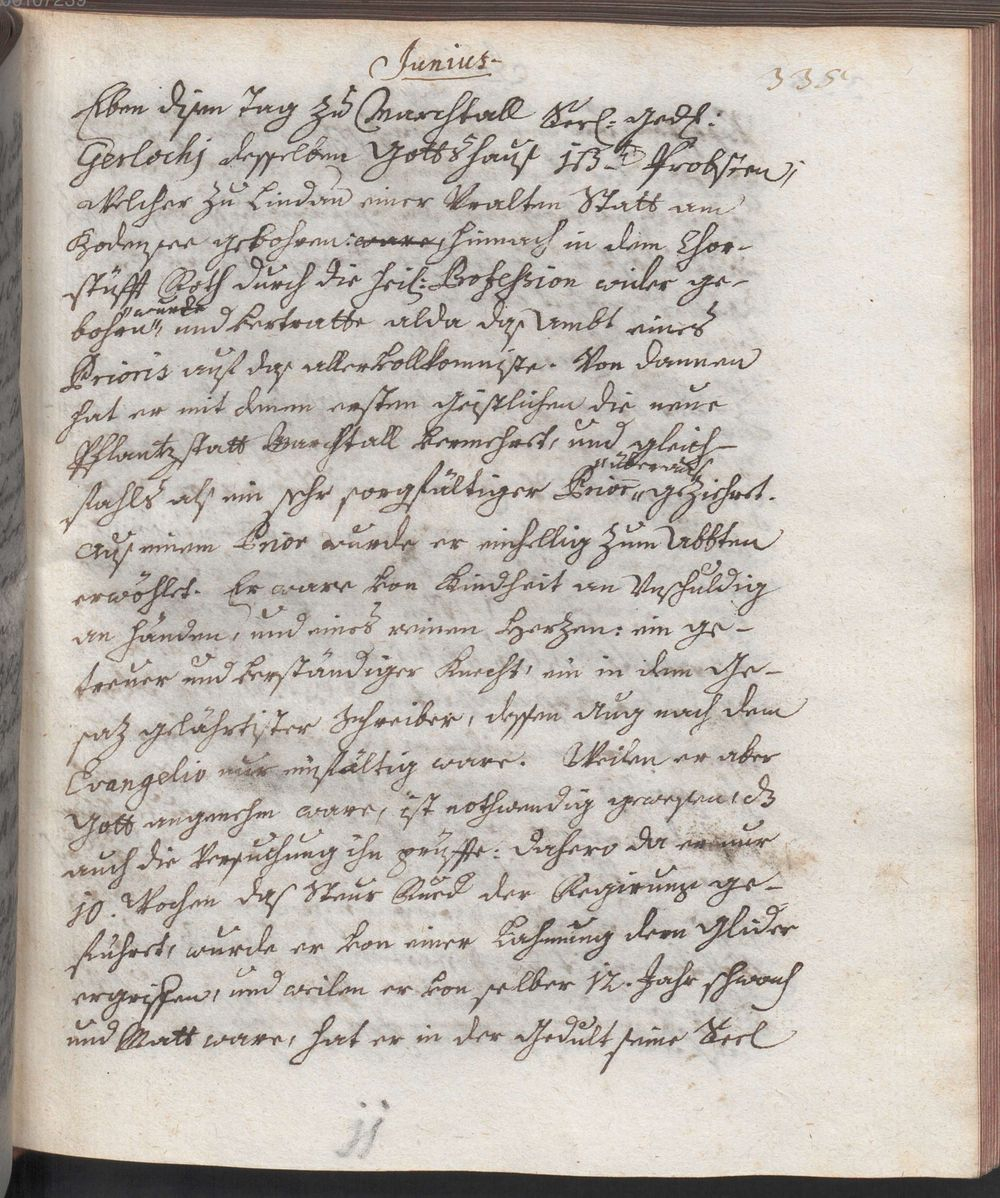 Junius.
335
Eben disen Tag zu Marchtall Seel: gedh:
Gerlochj desselben Gottshauß Probsten,
welcher zu Lindau einer Uralten Statt am
Bodensee gebohren: ware, hinnach in dem Chor-
stüfft Roth durch die heil: Profession wider ge-
bohrn „wurde„ und vertratte alda das Ambt eines
Prioris auf das allervollkomniste. Von dannen
hat er mit denen ersten Geistlichen die neue
Pflantzstatt Marchtall vermehret, und gleich-
fahls als ein sehr sorgfältiger Prior „überauß„ geziehret.
Auß einem Prior wurde er einhellig zum Abbten
erwöhlet. Er ware von Kindheit an Unschuldig
an händen, und eines reinen Herzen: ein ge-
treuer und verständiger Knecht, ein in dem Ge-
satz gelährtister Schreiber, dessen Aug nach dem
Evangelio nur einfältig ware. Weilen er aber
Gott angenehm ware, ist nothwendig gewesen, dz
auch die Versuchung ihn prüffe: dahero da er nur
10. Wochen das Steur Rued der Regirung ge-
führet, wurde er von einer Lahmung dern Glider
ergriffen, und weilen er von selber 12. Jahr schwach
und Matt ware, hat er in der Gedult seine Seel
jj